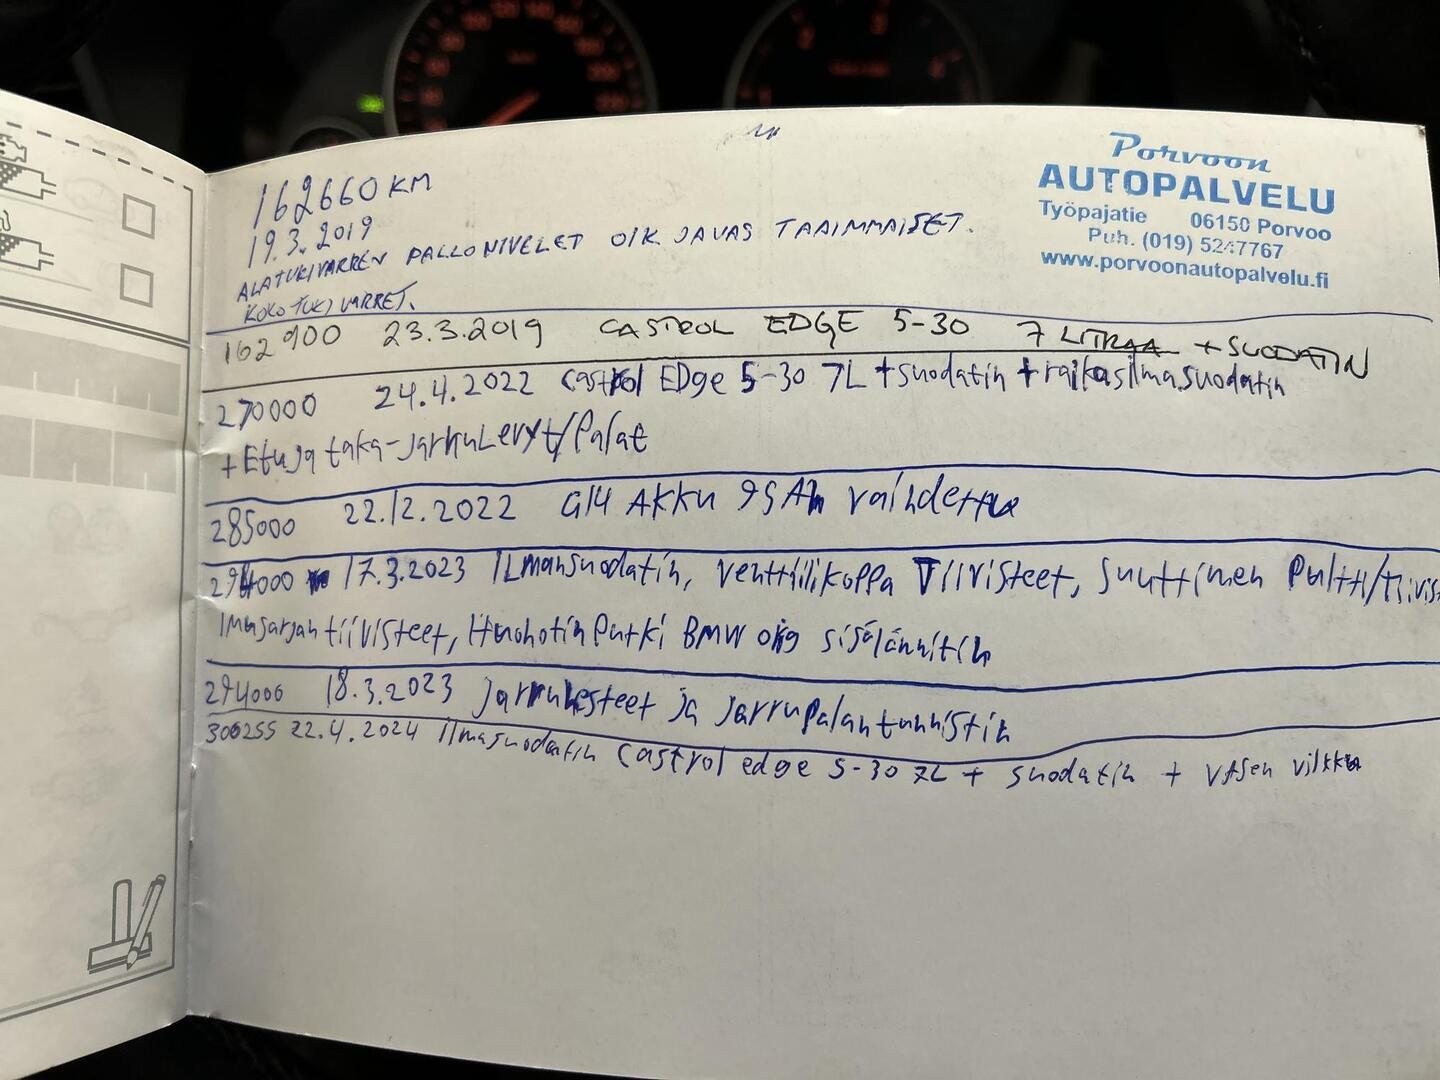 162660 KM
19.3.2019
ALATUKIVARREN PALLONIVELET OIK JA VAS TAAIMMAISET.
KOKO TUKIVARRET.
Porvoon
AUTOPALVELU
Työpajatie 06150 Porvoo
Puh. (019) 5247767
www.porvoonautopalvelu.fi
162900 23.3.2019 CASTROL EDGE 5-30 7 LITRAA +SUODATIN
270000 24.4.2022 Castrol EDge 5-30 7L +suodatin +raikasilmasuodatin
+Etu ja taka-jarruLevyt/Palat
285000 22.12.2022 AKKU 95Ah vaihdettu
294000 17.3.2023 ILmansuodatin, venttiilikoppa Tiivisteet, Suuttimen Pultti/Tiivist
Imusarjan tiivisteet, Huohotin Putki BMW orig sisälännitin
294000 18.3.2023 jarrunesteet ja jarrupalan tunnistin
300255 22.4.2024 ilmasuodatin Castrol edge 5-30 7L + suodatin + vasen vilkku